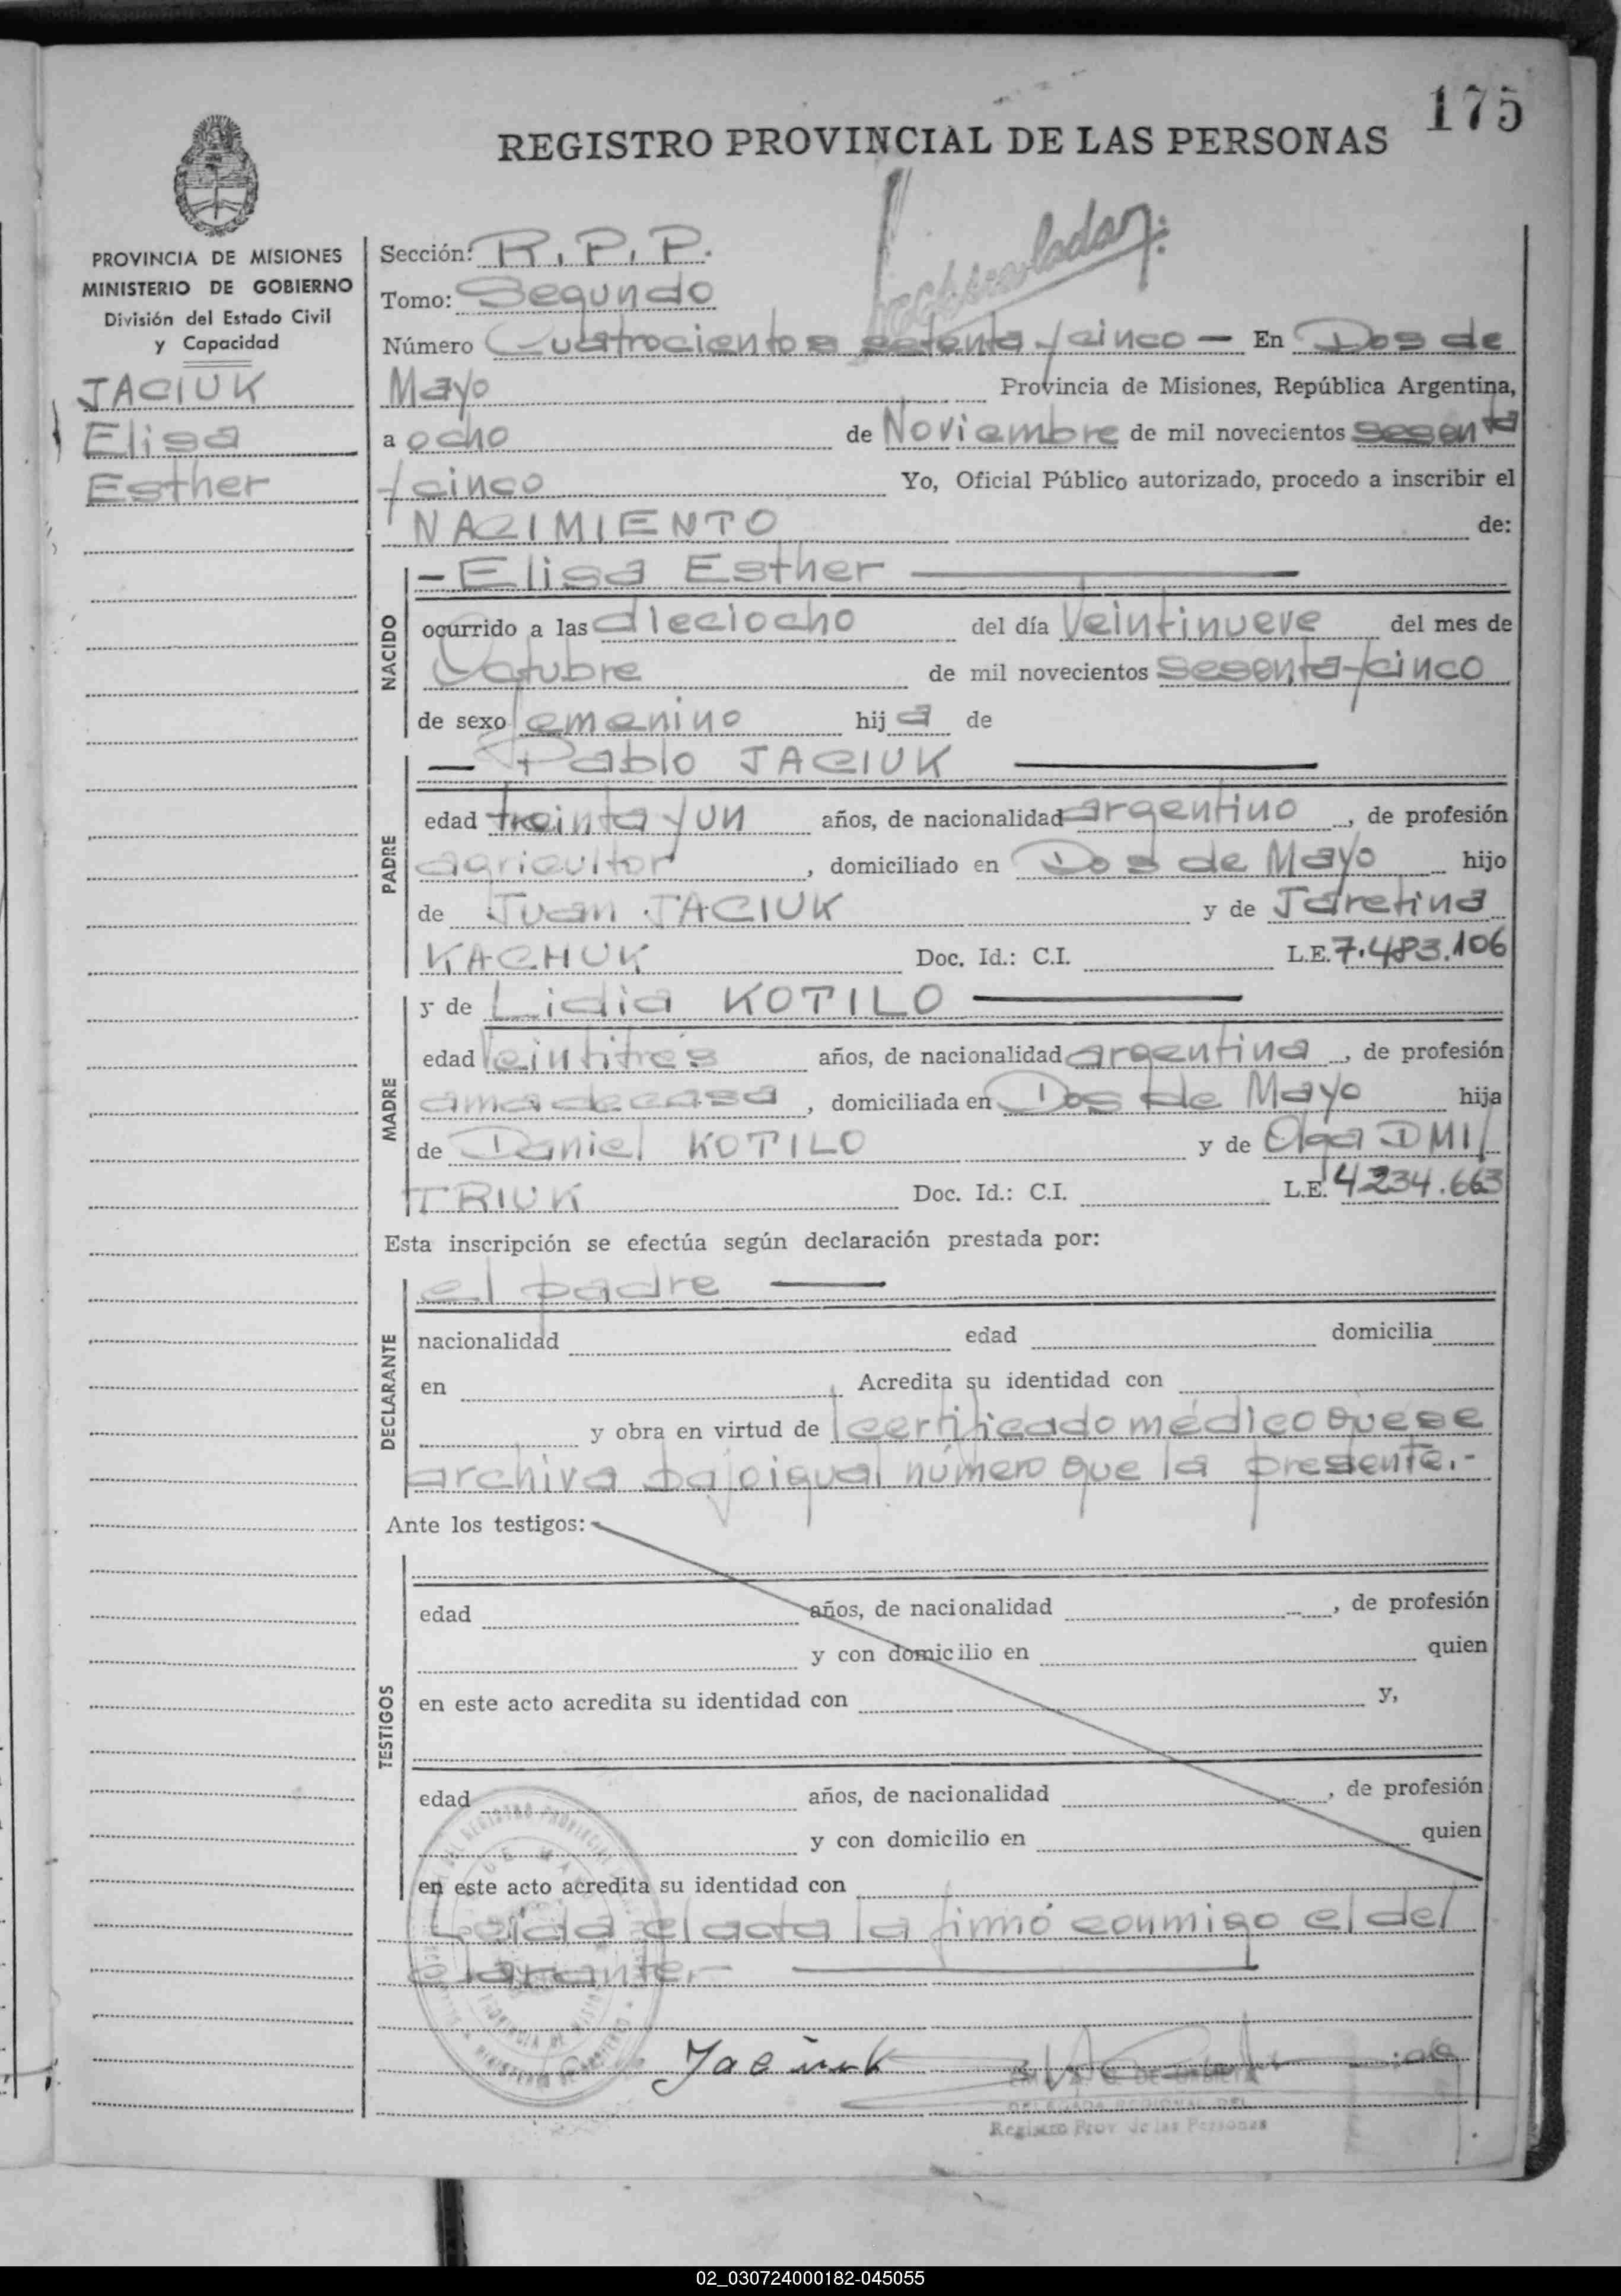 175
REGISTRO PROVINCIAL DE LAS PERSONAS
PROVINCIA DE MISIONES
MINISTERIO DE GOBIERNO
División del Estado Civil
y Capacidad
JACIUK
Elisa
Esther
Sección: R.P.P.
Tomo: Segundo
Número Cuatrocientos setenta y cinco — En Dos de
Mayo Provincia de Misiones, República Argentina,
a ocho de Noviembre de mil novecientos sesenta
y cinco Yo, Oficial Público autorizado, procedo a inscribir el
NACIMIENTO de:
NACIDO
— Elisa Esther —
ocurrido a las dieciocho del día Veintinueve del mes de
Octubre de mil novecientos sesenta y cinco
de sexo femenino hija de
PADRE
— Pablo JACIUK —
edad treinta y un años, de nacionalidad argentino, de profesión
agricultor, domiciliado en Dos de Mayo hijo
de Juan JACIUK y de Jaretina
KACHUK Doc. Id.: C.I. L.E. 7.483.106
MADRE
y de Lidia KOTILO —
edad Veintitrés años, de nacionalidad argentina, de profesión
ama de casa, domiciliada en Dos de Mayo hija
de Daniel KOTILO y de Olga DMI/
TRIUK Doc. Id.: C.I. L.E. 4234.663
Esta inscripción se efectúa según declaración prestada por:
DECLARANTE
el padre —
nacionalidad edad domicilia
en Acredita su identidad con
y obra en virtud de certificado médico que se
archiva bajo igual número que la presente.-
Ante los testigos:
TESTIGOS
edad años, de nacionalidad , de profesión
y con domicilio en quien
en este acto acredita su identidad con y,
edad años, de nacionalidad , de profesión
y con domicilio en quien
en este acto acredita su identidad con
Leida el acta la firmó conmigo el del
clarante.- —
Jaciuk
Registro Prov de las Personas
02_030724000182-045055